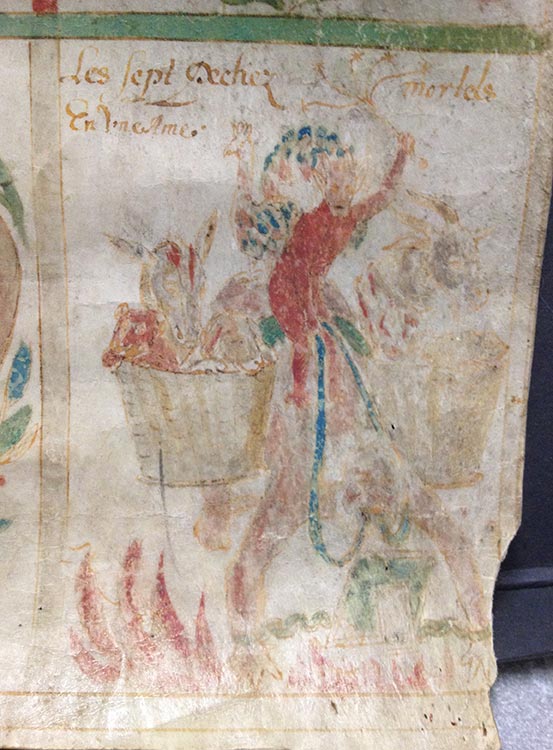 Les sept Pechez mortels
En Vne Ame.